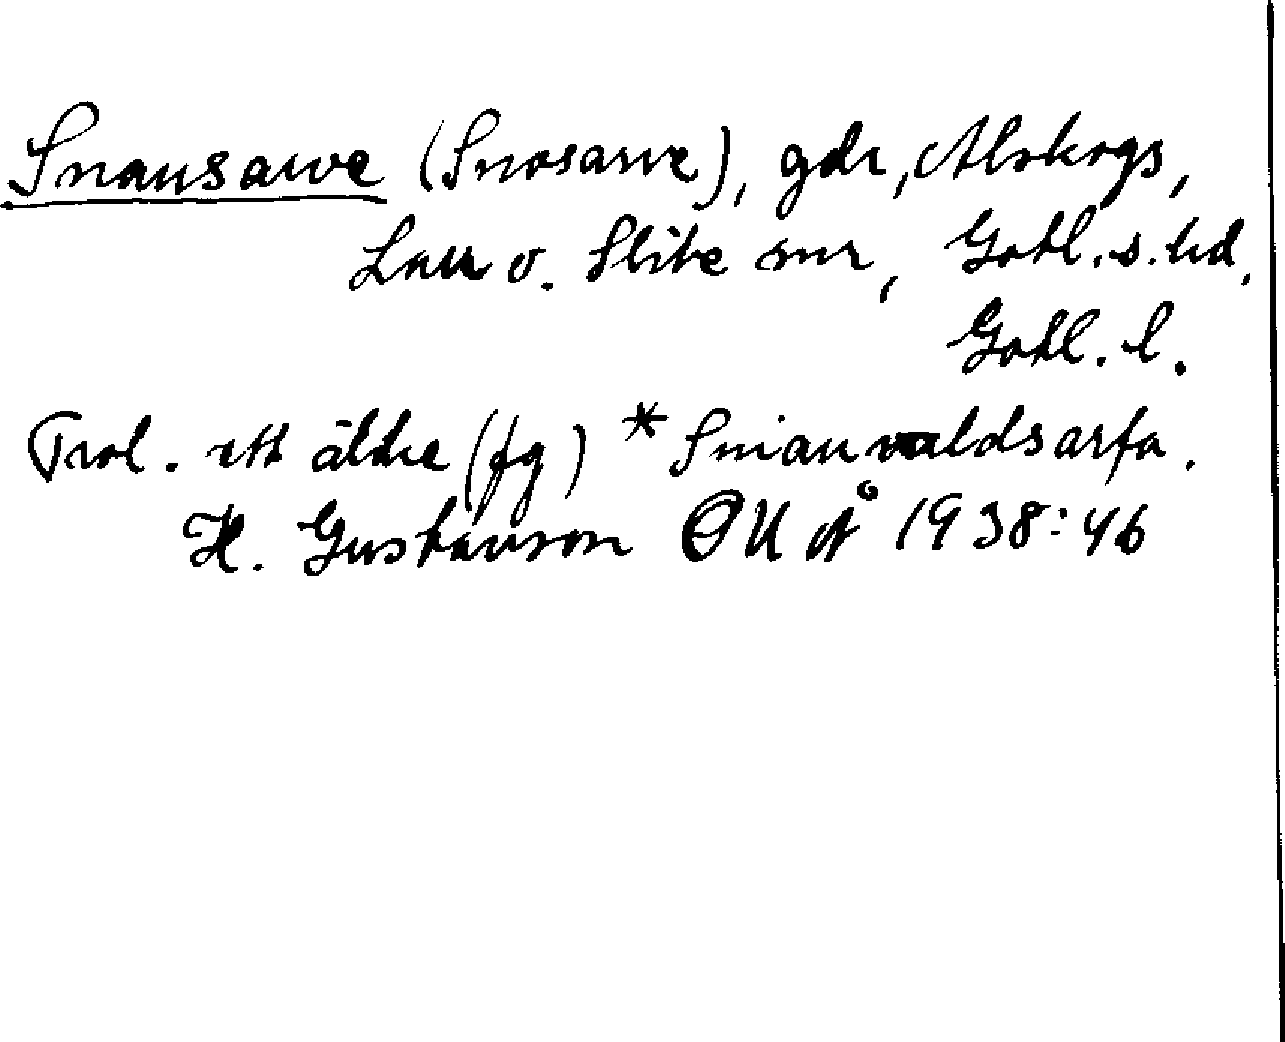 Snausarve (Snosarve), gdr, Alskogs,
Lau o. Slite snr, Gotl. s. hd,
Gotl. l.
Trol. ett äldre (fg) * Sniauvaldsarfa.
H. Gustavson OUÅ 1938:46